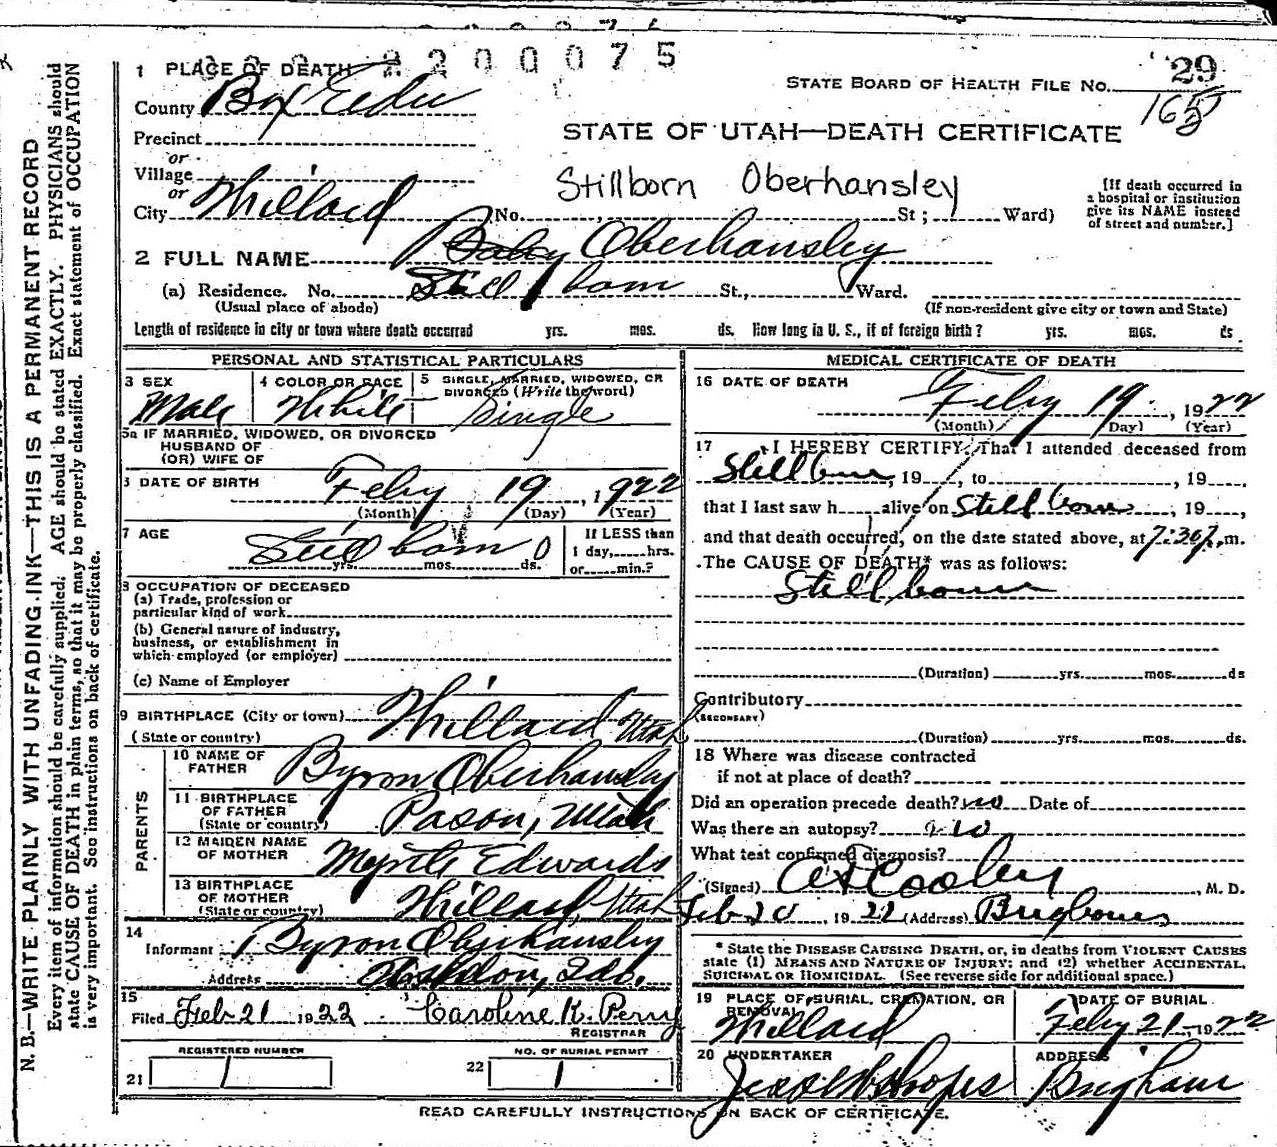 2200075
1 PLACE OF DEATH
STATE BOARD OF HEALTH FILE NO. 29
County Box Elder
165
Precinct
STATE OF UTAH—DEATH CERTIFICATE
or
Village
Stillborn Oberhansley
or
City Willard No. St; Ward)
[If death occurred in a hospital or institution give its NAME instead of street and number.]
2 FULL NAME Baby Oberhansley
Still born
(a) Residence. No. St., Ward.
(Usual place of abode) (If non-resident give city or town and State)
Length of residence in city or town where death occurred yrs. mos. ds. How long in U. S., if of foreign birth? yrs. mos. ds
PERSONAL AND STATISTICAL PARTICULARS
3 SEX Male
4 COLOR OR RACE White
5 SINGLE, MARRIED, WIDOWED, OR DIVORCED (Write the word) Single
5a IF MARRIED, WIDOWED, OR DIVORCED
HUSBAND OF
(OR) WIFE OF
DATE OF BIRTH Feby 19, 1922
(Month) (Day) (Year)
7 AGE Still born 0
yrs. mos. ds.
If LESS than
1 day, hrs.
or min.?
8 OCCUPATION OF DECEASED
(a) Trade, profession or
particular kind of work
(b) General nature of industry,
business, or establishment in
which employed (or employer)
(c) Name of Employer
9 BIRTHPLACE (City or town) Willard Utah
(State or country)
PARENTS
10 NAME OF FATHER Byron Oberhansley
11 BIRTHPLACE OF FATHER Payson, Utah
(State or country)
12 MAIDEN NAME OF MOTHER Myrtle Edwards
13 BIRTHPLACE OF MOTHER Willard, Utah
(State or country)
14
Informant Byron Oberhansley
Address Ida.
15
Filed Feb 21 1922 Caroline K. Perry
REGISTRAR
REGISTERED NUMBER
21 1
NO. OF BURIAL PERMIT
22 1
MEDICAL CERTIFICATE OF DEATH
16 DATE OF DEATH
Feby 19, 1922
(Month) (Day) (Year)
17 I HEREBY CERTIFY, That I attended deceased from
Stillborn, 19, to , 19,
that I last saw h alive on Still born, 19,
and that death occurred, on the date stated above, at 7:30 P.m.
The CAUSE OF DEATH* was as follows:
Stillborn
(Duration) yrs. mos. ds
Contributory
(SECONDARY)
(Duration) yrs. mos. ds.
18 Where was disease contracted
if not at place of death?
Did an operation precede death? no Date of
Was there an autopsy? no
What test confirmed diagnosis?
(Signed) Cooley, M. D.
Feb 20, 1922 (Address)
* State the DISEASE CAUSING DEATH, or, in deaths from VIOLENT CAUSES
state (1) MEANS AND NATURE OF INJURY; and (2) whether ACCIDENTAL,
SUICIDAL OR HOMICIDAL. (See reverse side for additional space.)
19 PLACE OF BURIAL, CREMATION, OR REMOVAL
Willard
DATE OF BURIAL
Feby 21, 1922
20 UNDERTAKER
ADDRESS
Brigham
READ CAREFULLY INSTRUCTIONS ON BACK OF CERTIFICATE.
N. B.—WRITE PLAINLY WITH UNFADING INK—THIS IS A PERMANENT RECORD
Every item of information should be carefully supplied. AGE should be stated EXACTLY. PHYSICIANS should
state CAUSE OF DEATH in plain terms, so that it may be properly classified. Exact statement of OCCUPATION
is very important. See instructions on back of certificate.